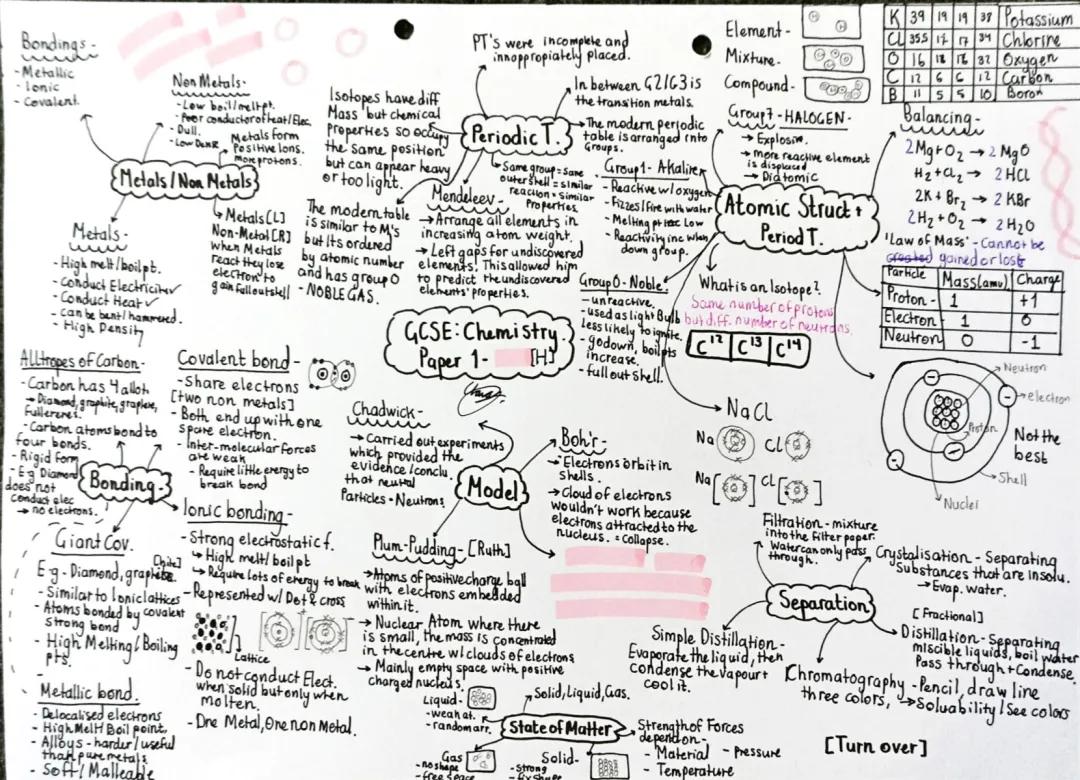 Bondings -
- Metallic
- Ionic
- Covalent.
Non Metals -
- Low boil/melt pt.
- Poor conductor of heat/Elec.
- Dull.
- Low Dense
Metals form
Positive Ions.
more protons.
Metals/Non Metals
Metals [L]
Non-Metal [R]
when Metals
react they lose
electron to
gain full outshell
Metals -
- High melt/boil pt.
- Conduct Electricity
- Conduct Heat
- Can be bent/hammered.
- High Density
Isotopes have diff
Mass but chemical
Properties so occupy
the same position
but can appear heavy
or too light.
PT's were incomplete and
innoppropiately placed.
In between G2/G3 is
the transition metals.
Periodic T.
The modern periodic
table is arranged into
Groups.
Same group = same
outer shell = similar
reaction = similar
Properties.
Mendeleev -
→ Arrange all elements in
increasing atom weight.
→ Left gaps for undiscovered
elements. This allowed him
to predict the undiscovered
elements' properties.
The modern table
is similar to M's
but its ordered
by atomic number
and has group 0
- NOBLE GAS.
Element -
Mixture -
Compound -
K 39 19 19 38 Potassium
CL 35.5 17 17 34 Chlorine
O 16 18 16 32 Oxygen
C 12 6 6 12 Carbon
B 11 5 5 10 Boron
Group 7 - HALOGEN -
→ Explosive.
→ more reactive element
is displaced
→ Diatomic
Group 1 - Alkaline
- Reactive w/ oxygen
- Fizzes/fire with water
- Melting pt Low
- Reactivity inc when
down group.
Atomic Struct +
Period T.
Balancing -
2Mg + O₂ → 2 MgO
H₂ + CL₂ → 2 HCl
2K + Br₂ → 2 KBr
2H₂ + O₂ → 2 H₂O
'Law of Mass' - Cannot be
created gained or lost
Particle Mass (amu) Charge
Proton - 1 +1
Electron 1 0
Neutron 0 -1
Group 0 - Noble -
- unreactive.
- used as light Bulb
less likely to ignite.
- go down, boil pts
increase.
- full out shell.
What is an Isotope?
Same number of protons
but diff. number of neutrons.
C¹² C¹³ C¹⁴
GCSE: Chemistry
Paper 1 - [H]
Neutron
electron
Proton
Shell
Nuclei
Not the
best
NaCl
Na Cl
Na Cl
Alltropes of Carbon -
- Carbon has 4 allot.
→ Diamond, graphite, graphene,
fullerenes.
- Carbon atoms bond to
four bonds.
- Rigid form
- Eg Diamond
does not
conduct elec
→ no electrons.
Bonding -
Covalent bond -
- Share electrons
[two non metals]
- Both end up with one
spare electron.
- Inter-molecular forces
are weak
- Require little energy to
break bond
Ionic bonding -
- Strong electrostatic f.
↳ High melt/boil pt
↳ Require lots of energy to break
- Represented w/ Dot & cross
Lattice
- Do not conduct Elect.
when solid but only when
molten.
- One Metal, One non Metal.
Giant Cov.
E.g - Diamond, graphite.
- Similar to Ionic lattices
- Atoms bonded by covalent
strong bond
- High Melting/Boiling
pts.
Metallic bond.
- Delocalised electrons
- High Melt/Boil point,
- Alloys - harder/useful
than pure metals.
- Soft/Malleable
Chadwick -
→ Carried out experiments
which provided the
evidence/conclu.
that neutral
Particles - Neutrons.
Model
Boh'r -
→ Electrons orbit in
Shells.
→ Cloud of electrons
wouldn't work because
electrons attracted to the
nucleus. = collapse.
Plum-Pudding - [Ruth]
→ Atoms of positive charge ball
with electrons embedded
within it.
→ Nuclear Atom where there
is small, the mass is concentrated
in the centre w/ clouds of electrons
→ Mainly empty space with positive
charged nucleus.
State of Matter
Solid, Liquid, Gas.
Liquid -
- weak at.
- random arr.
Gas
- no shape
- free space
Solid -
- Strong
- fix shape
Strength of Forces
depend on -
- Material - Pressure
- Temperature
Filtration - mixture
into the filter paper.
Water can only pass
through.
Crystalisation - Separating
Substances that are insolu.
→ Evap. water.
Separation
[Fractional]
Distillation - Separating
miscible liquids, boil water
Pass through + Condense.
Simple Distillation -
Evaporate the liquid, then
condense the vapour +
cool it.
Chromatography - Pencil, draw line
three colors, → Soluability/See colors
[Turn over]